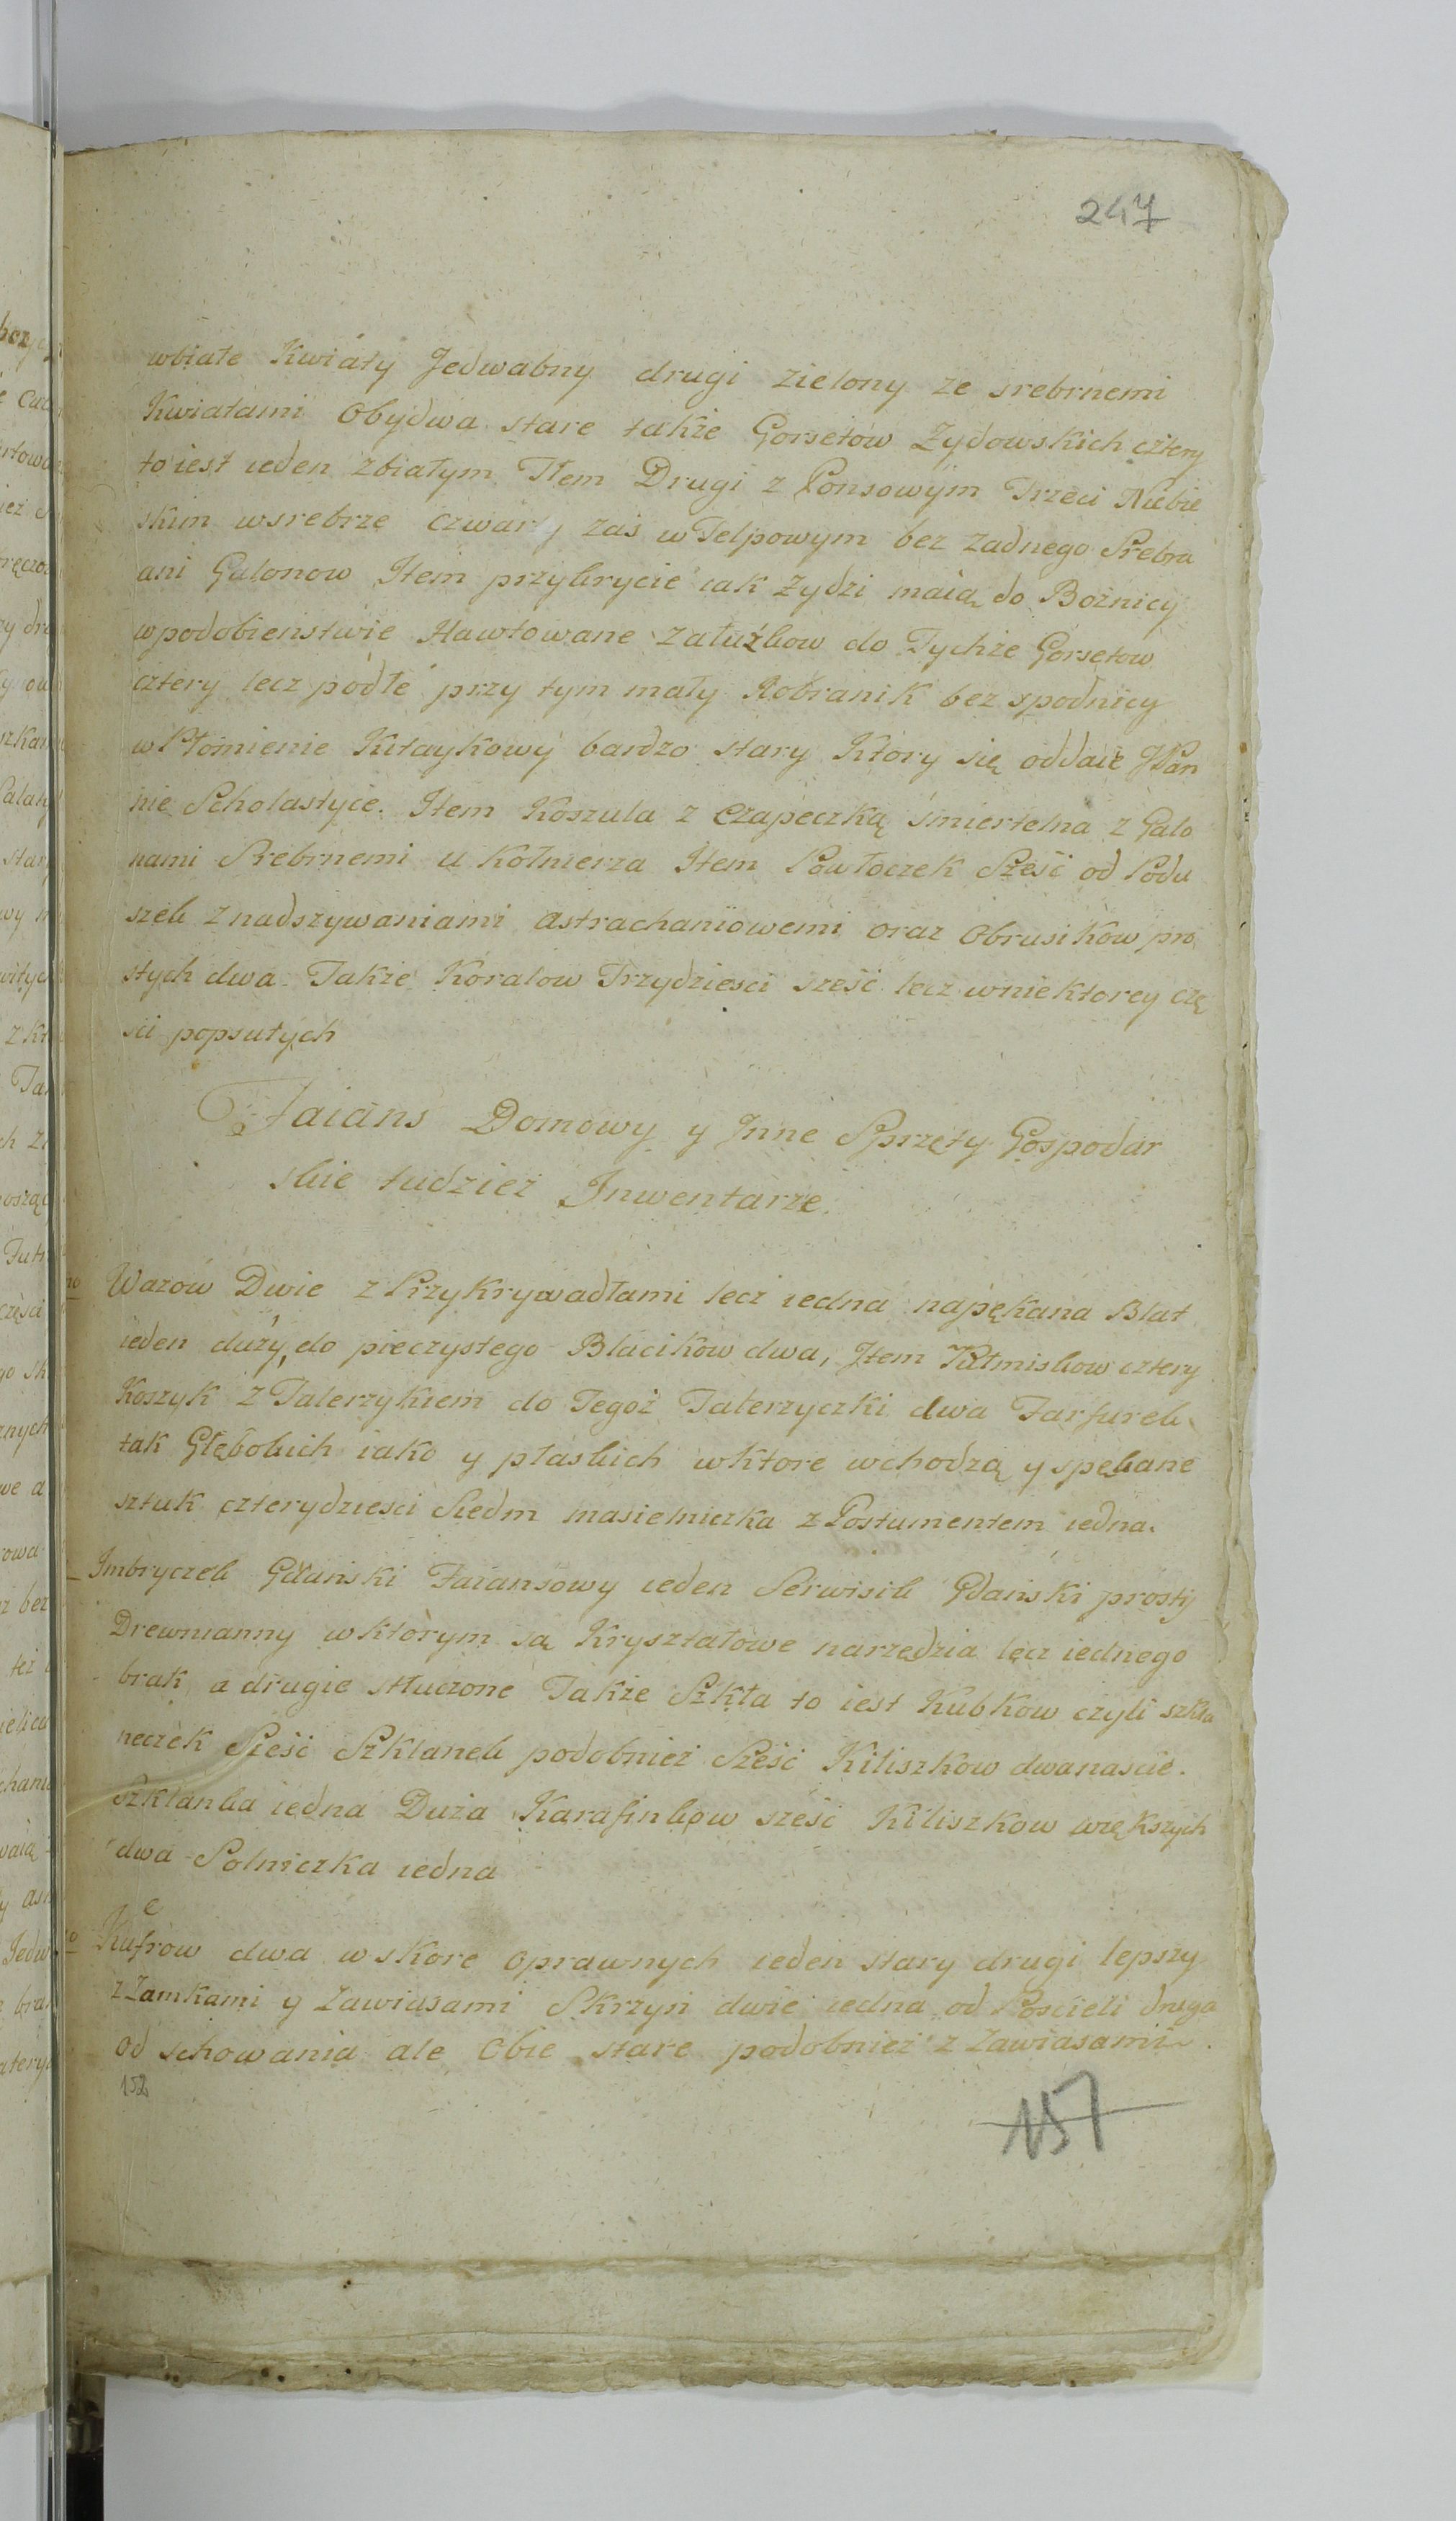 247
wbiałe Kwiaty Jedwabny drugi zielony ze srebrnemi
Kwiatami Obydwa stare także Gorsetow Zydowskich cztery
to iest ieden zbiałym Tłem Drugi z Ponsowym Trzeci Niebie
skim wsrebrze czwarty zaś w Telpowym bez żadnego Srebra
ani Galonow Item przykrycie iak Zydzi maią do Bożnicy
wpodobieństwie Hawtowane załużkow do Tychże Gorsetow
cztery lecz podłe przy tym mały Robranik bez spodnicy
w Płomienie Kitaykowy bardzo stary Ktory się oddaie JPan
nie Scholastyce. Item Koszula z Czapeczką śmiertelna z Galo
nami Srebrnemi u Kołnierza Item Powłoczek Sześć od Podu
szek znadszywaniami astrachaniowemi oraz Obrusikow pro
stych dwa Także Koralow Trzydziesci sześć lecz wniektorey czę
ści popsutych
Faians Domowy y Inne Sprzęty Gospodar
skie tudzież Inwentarze.
Wazow Dwie z Przykrywadłami lecz iedna napękana Blat
ieden duży do pieczystego Blacikow dwa, Item Kalmiskow cztery
Koszyk z Talerzykiem do Tegoż Talerzyczki dwa Farfurek
tak Głębokich iako y płaskich wktore wchodzą y spękane
sztuk czterydziesci Siedm masielniczka z Postumentem iedna.
Imbryczek Gdański Faiansowy ieden Serwisik Gdański prosty
Drewnianny wktórym są Kryształowe narzędzia lecz iednego
brak, a drugie stłuczone Także Szkła to iest Kubkow czyli szkla
neczek Sześć Szklanek podobnież Sześć Kiliszkow dwanascie.
Szklanka iedna Duża Karafinkow sześć Kiliszkow większych
dwa Solniczka iedna
Kufrow dwa w skore oprawnych ieden stary drugi lepszy
z Zamkami y Zawiasami Skrzyń dwie iedna od Poscieli druga
od schowania ale Obie stare podobnież z Zawiasami.
152
157